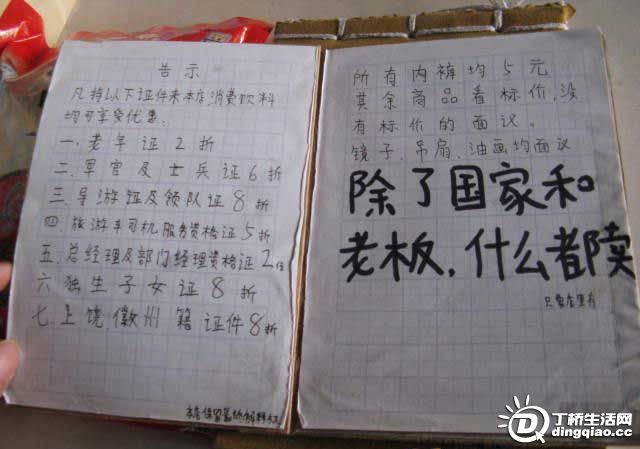 告示
凡持以下证件来本店消费饮料
均可享受优惠.
一.老年证2折
二.军官及士兵证6折
三.导游证及领队证8折
四 旅游车司机服务资格证5折
五.总经理及部门经理资格证2倍
六 独生子女证8折
七.上饶徽州籍证件8折
本店保留最终解释权
所有内裤均5元
其余商品看标价,没
有标价的面议。
镜子、吊扇、油画均面议
除了国家和
老板,什么都卖
只要店里有
丁桥生活网
dingqiao.cc